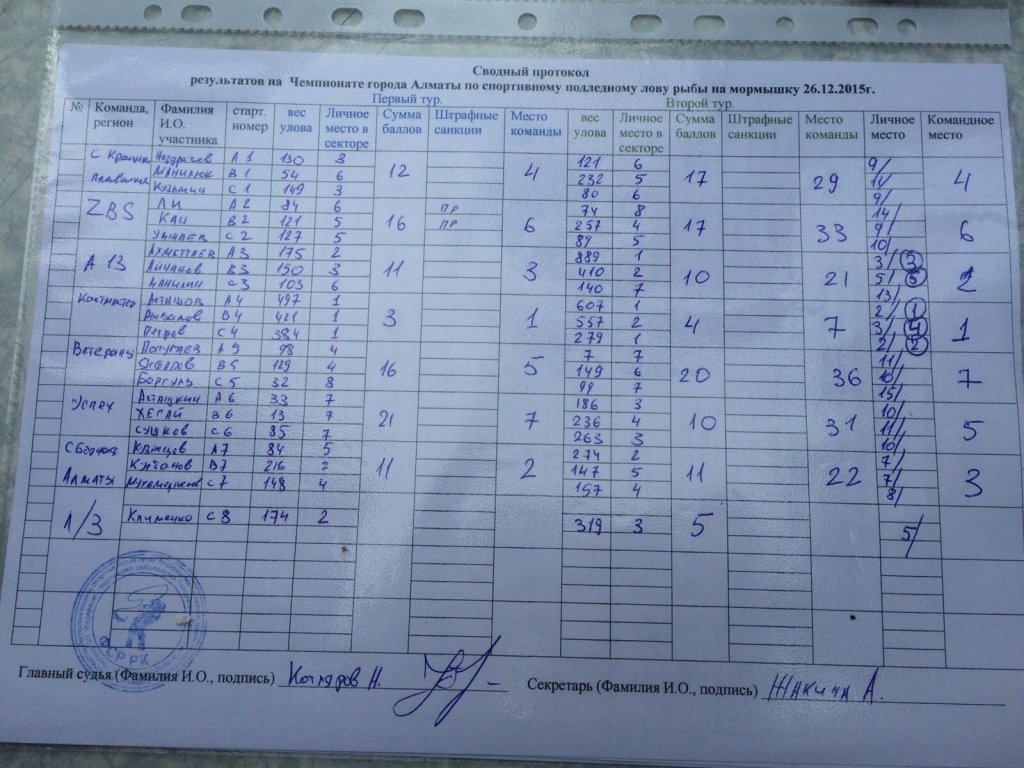 Сводный протокол
результатов на Чемпионате города Алматы по спортивному подледному лову рыбы на мормышку 26.12.2015г.
Первый тур. Второй тур.
№ Команда, регион Фамилия И.О. участника старт. номер вес улова Личное место в секторе Сумма баллов Штрафные санкции Место команды вес улова Личное место в секторе Сумма баллов Штрафные санкции Место команды Личное место Командное место
A 1 130 3 12 4 121 6 17 29 9/ 4
B 1 54 6 232 5 14/
C 1 149 3 80 6 9/
ZBS ЛИ A 2 84 6 16 ПР 6 74 8 17 33 14/ 6
КАЦ B 2 121 5 ПР 257 4 9/
C 2 127 5 89 5 10/
А 13 A 3 175 2 11 3 889 1 10 21 3/ 3 2
B 3 150 3 410 2 5/
C 3 103 6 140 7 13/
A 4 497 1 3 1 607 1 4 7 2/ 1 1
B 4 421 1 557 2 3/ 4
Петров C 4 384 1 279 1 2/ 2
Ветераны A 5 98 4 16 5 7 7 20 36 11/ 7
B 5 129 4 149 6 10/
C 5 32 8 99 7 15/
Успех A 6 33 7 21 7 186 3 10 31 10/ 5
ХЕГАЙ B 6 13 7 236 4 11/
СУШКОВ C 6 85 7 263 3 10/
Сборная Алматы A 7 84 5 11 2 274 2 11 22 7/ 3
B 7 216 2 147 5 7/
C 7 148 4 157 4 8/
1/3 Клименко C 8 174 2 319 3 5 5/
ФСР РК
Главный судья (Фамилия И.О., подпись) Секретарь (Фамилия И.О., подпись) Жакина А.